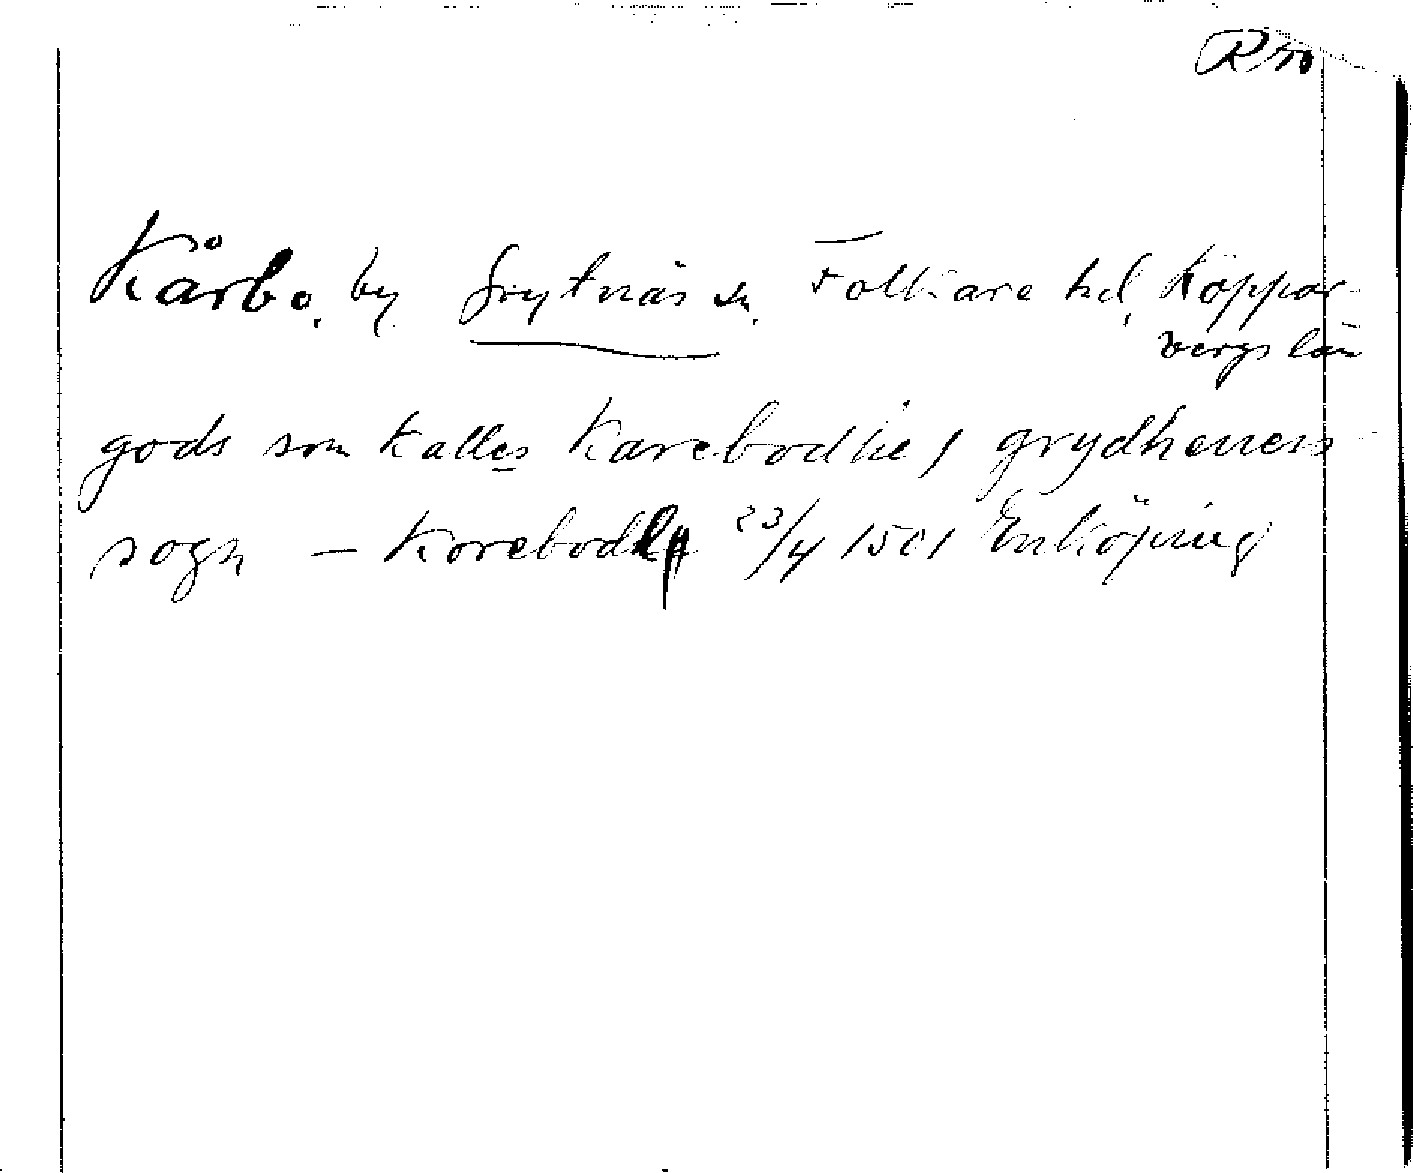 Kårbo, by Grytnäs sn, Folkare hd, Koppar-
bergs län
gods som kalles Karebodhe i grydheness
sogn — Korebodh 23/4 1501 Enköping